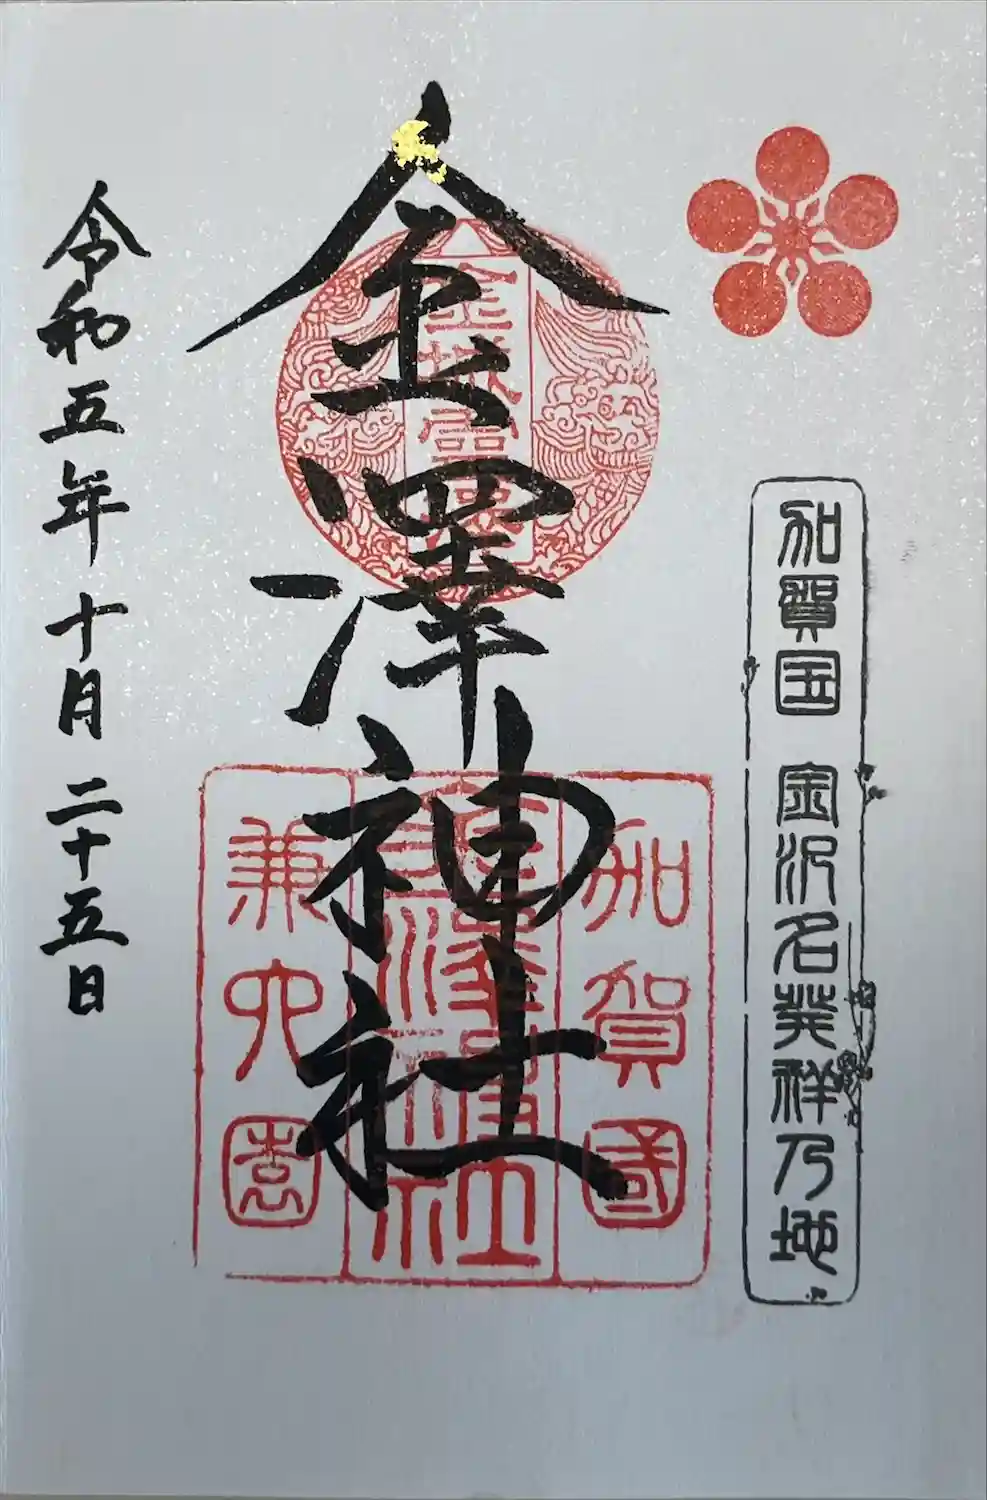 加賀国 金沢名発祥乃地
金澤神社
金城霊澤
加賀國
金澤神社
兼六園
令和五年十月二十五日